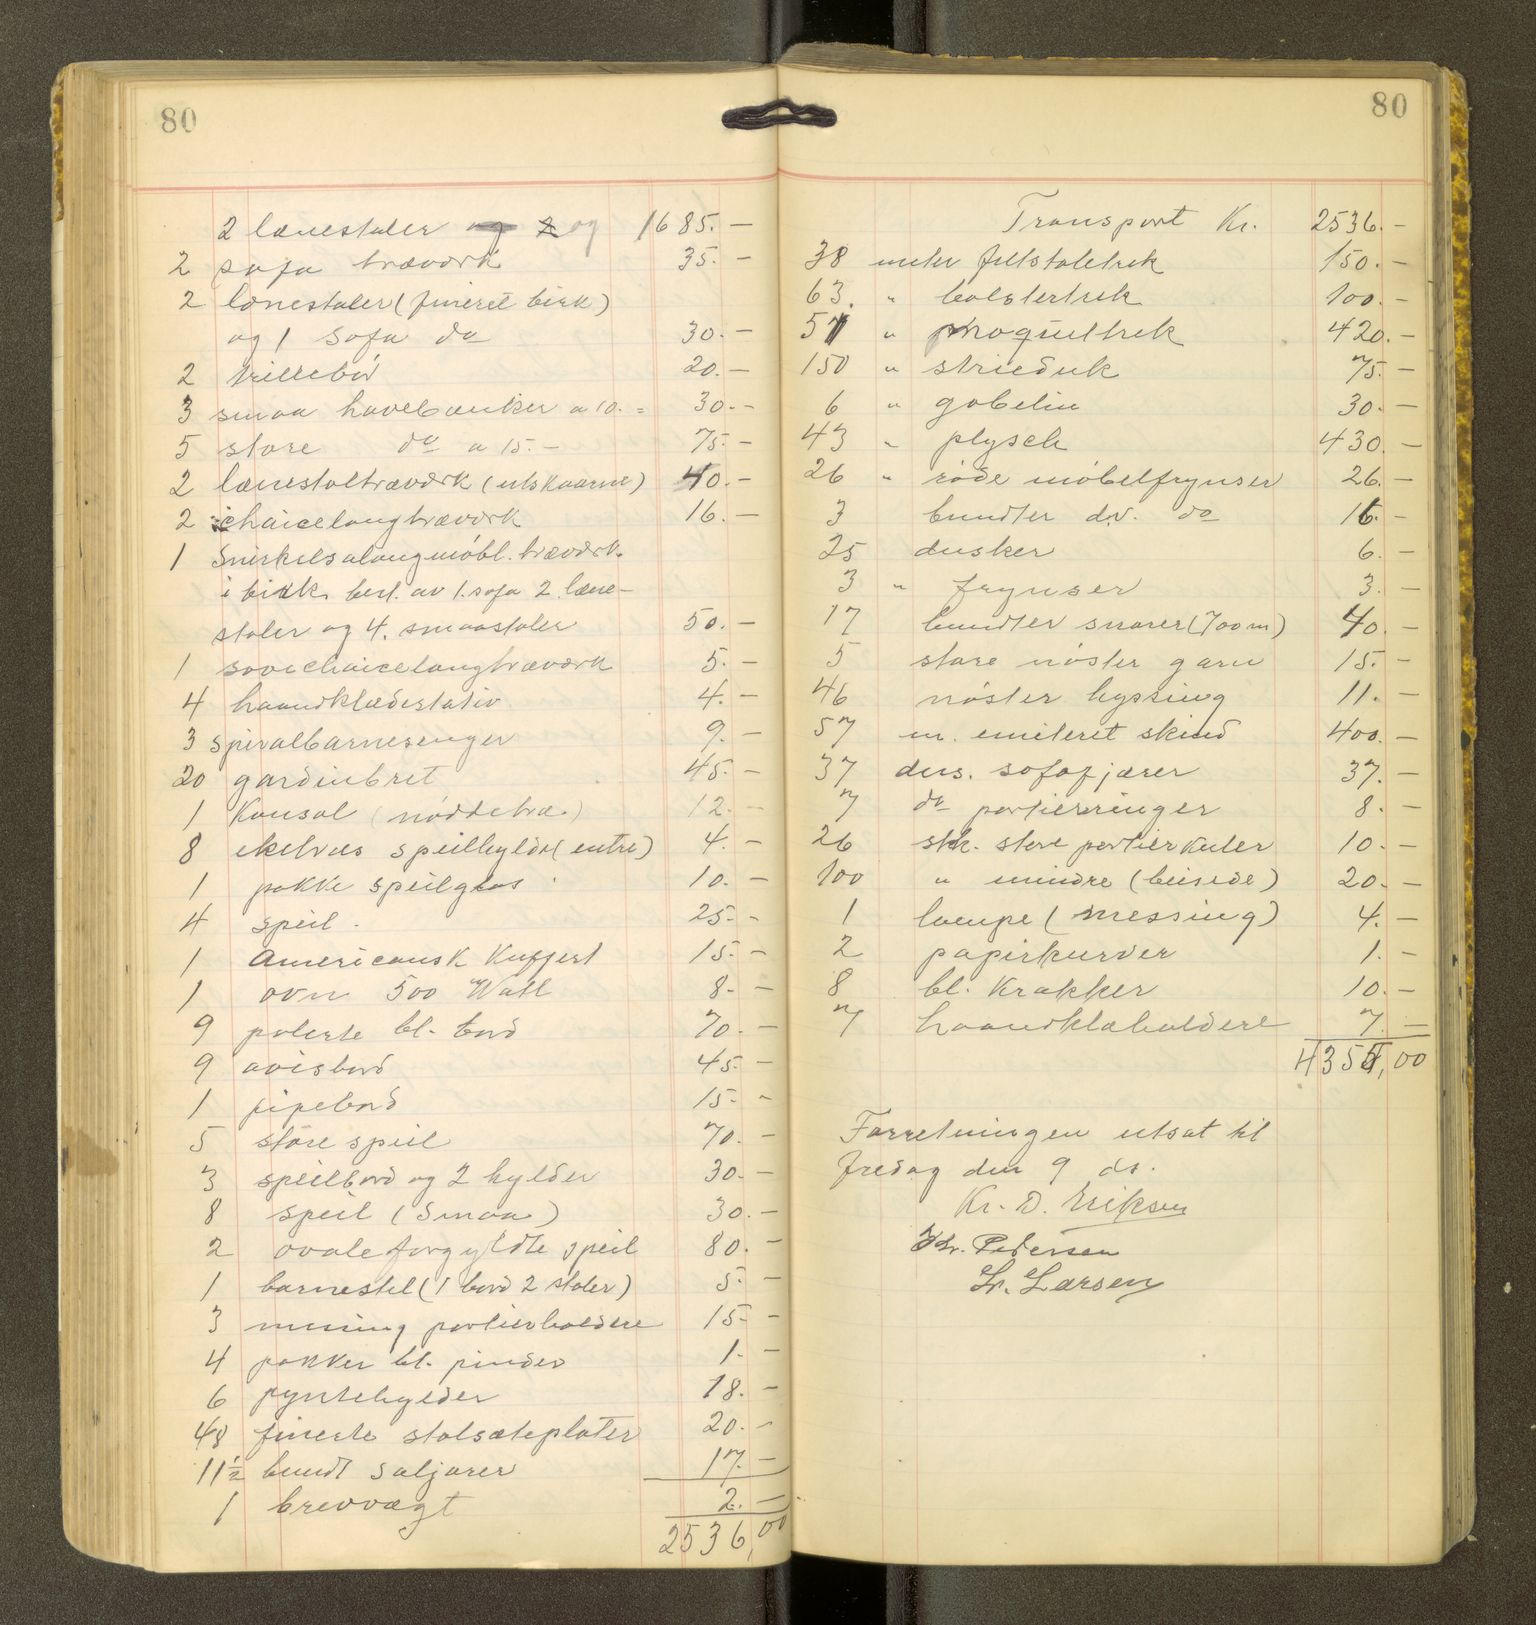 80
2 lænestoler og 1685.-
2 sofa træværk 35.-
2 lænestoler (fineret birk)
og 1 sofa do 30.-
2 trillebör 20.-
3 smaa havebænker a 10.- 30.-
5 store do a 15.- 75.-
2 lænestoltræværk (utskaarne) 40.-
2 chaicelongtræværk 16.-
1 Snirkelsalongmöbl. træværk.
i birk best. av 1. sofa 2 læne-
stoler og 4. smaastoler 50.-
1 sovechaicelongtræværk 5.-
4 haandklædestativ 4.-
3 spiralbarnesenger 9.-
20 gardinbret 45.-
1 Konsol (nöddetræ.) 12.-
8 eketræs speilhylder (entre) 4.-
1 pakke speilglas 10.-
4 speil. 25.-
1 Americansk Kuffert 15.-
1 ovn 500 Watt 8.-
9 polerte bl. bord 70.-
9 avisbord 45.-
1 pipebord 15.-
5 store speil 70.-
3 speilbord og 2 hylder 30.-
8 speil (smaa) 30.-
2 ovale forgyldte speil 80.-
1 barnestel (1 bord 2 stoler) 5.-
3 messing portierholdere 15.-
4 pakker bl. pinder 1.-
6 pyntehylder 18.-
48 finerte stolsæteplater 20.-
11½ bundt saljorer 17.-
1 brevvægt 2.-
2536,00
80
Transport Kr. 2536.-
38 meter filtstoletrek 150.-
63. " bolstertrek 100.-
57 " moquettrek 420.-
150 " strieduk 75.-
6 " gobelin 30.-
43 " plysch 430.-
26 " röde möbelfrynser 26.-
3 bundter d.v. do 16.-
25 dusker 6.-
3 " frynser 3.-
17 bundter snorer (700m) 40.-
5 store nöster garn 15.-
46 nöster hyssing 11.-
57 m. imiteret skind 400.-
37 dus. sofafjærer 37.-
7 do portierringer 8.-
26 stk. store portierkuler 10.-
100 " mindre (beisede) 20.-
1 lampe (messing) 4.-
2 papirkurver 1.-
8 bl. Krakker 10.-
7 haandklæholdere 7.-
4354,00
Forretningen utsat til
fredag den 9 ds.
Kr. D. Eriksen
Hr. Pedersen
Lr. Larsen